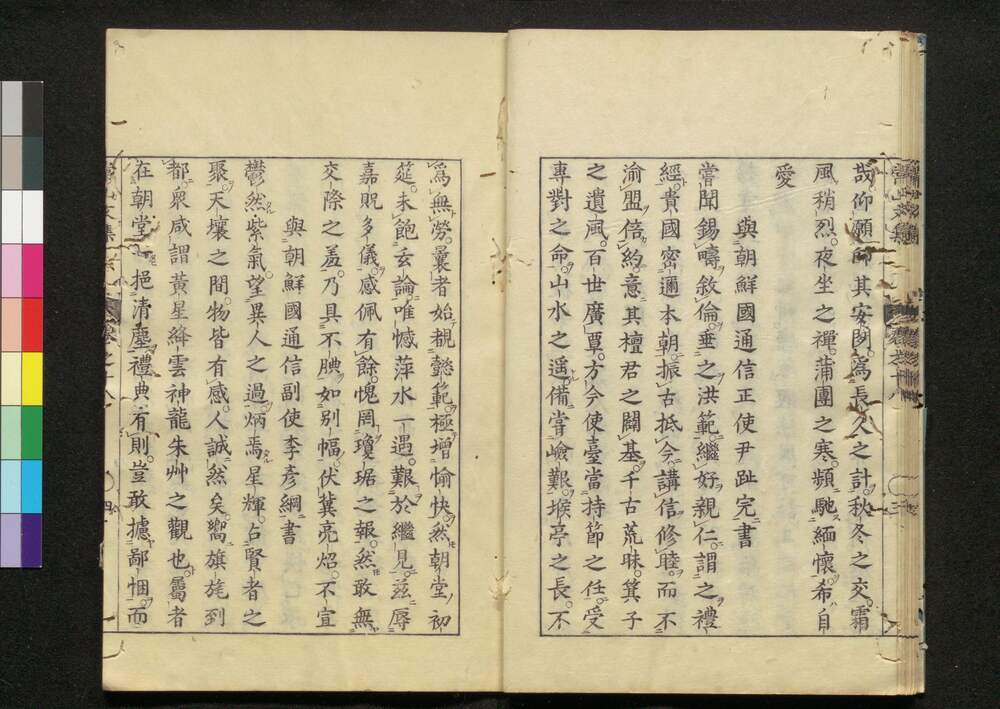 哉。仰願師其安閉。爲長久之計。秋冬之交。霜
風稍烈。夜坐之禪。蒲團之寒。頻馳緬懷。希自
愛
與朝鮮國通信正使尹趾完書
嘗聞錫疇敘倫。垂之洪範。繼好親仁。謂之禮
經。貴國密邇本朝。振古抵今。講信修睦。而不
渝盟。倍約。意其檀君之闢基。千古荒昧。箕子
之遺風。百世廣覃。方今使臺當持節之任。受
專對之命。山水之遥。備嘗嶮艱。堠亭之長。不
爲無勞。曩者始覩懿範。極增愉快。然朝堂初
筵。未飽玄論。唯憾萍水一遇。艱於繼見。茲辱
嘉貺多儀。感佩有餘。愧罔瓊琚之報。然敢無
交際之羞。乃具不腆。如別幅。伏冀亮炤。不宣
與朝鮮國通信副使李彥綱書
鬱然紫氣。望異人之過。炳焉星輝。占賢者之
聚。天壤之間。物皆有感。人誠然矣。嚮旗旄到
都。衆咸謂黃星絳雲神龍朱艸之觀也。屬者
在朝堂。一挹清塵。禮典有則。豈敢攄鄙悃。而